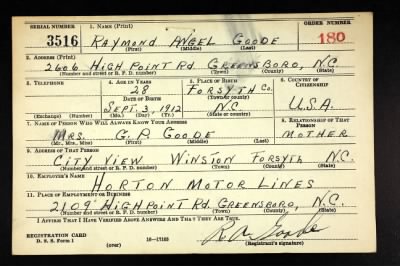 SERIAL NUMBER 1. NAME (Print) ORDER NUMBER
3516 RAYMOND ANGEL GOODE 180
(First) (Middle) (Last)
2. ADDRESS (Print)
2606 HIGH POINT Rd. GREENSBORO, N.C.
(Number and street or R. F. D. number) (Town) (County) (State)
3. TELEPHONE 4. AGE IN YEARS 5. PLACE OF BIRTH 6. COUNTRY OF CITIZENSHIP
28 FORSYTH Co.
DATE OF BIRTH (Town or county)
SEPT. 3, 1912 N.C. U.S.A.
(Exchange) (Number) (Mo.) (Day) (Yr.) (State or country)
7. NAME OF PERSON WHO WILL ALWAYS KNOW YOUR ADDRESS 8. RELATIONSHIP OF THAT PERSON
MRS. G. P. GOODE MOTHER
(Mr., Mrs., Miss) (First) (Middle) (Last)
9. ADDRESS OF THAT PERSON
CITY VIEW WINSTON FORSYTH N.C.
(Number and street or R. F. D. number) (Town) (County) (State)
10. EMPLOYER'S NAME
HORTON MOTOR LINES
11. PLACE OF EMPLOYMENT OR BUSINESS
2109 HIGH POINT Rd. GREENSBORO, N.C.
(Number and street or R. F. D. number) (Town) (County) (State)
I AFFIRM THAT I HAVE VERIFIED ABOVE ANSWERS AND THAT THEY ARE TRUE.
REGISTRATION CARD R A Goode
D. S. S. Form 1 (over) 16-17105 (Registrant's signature)